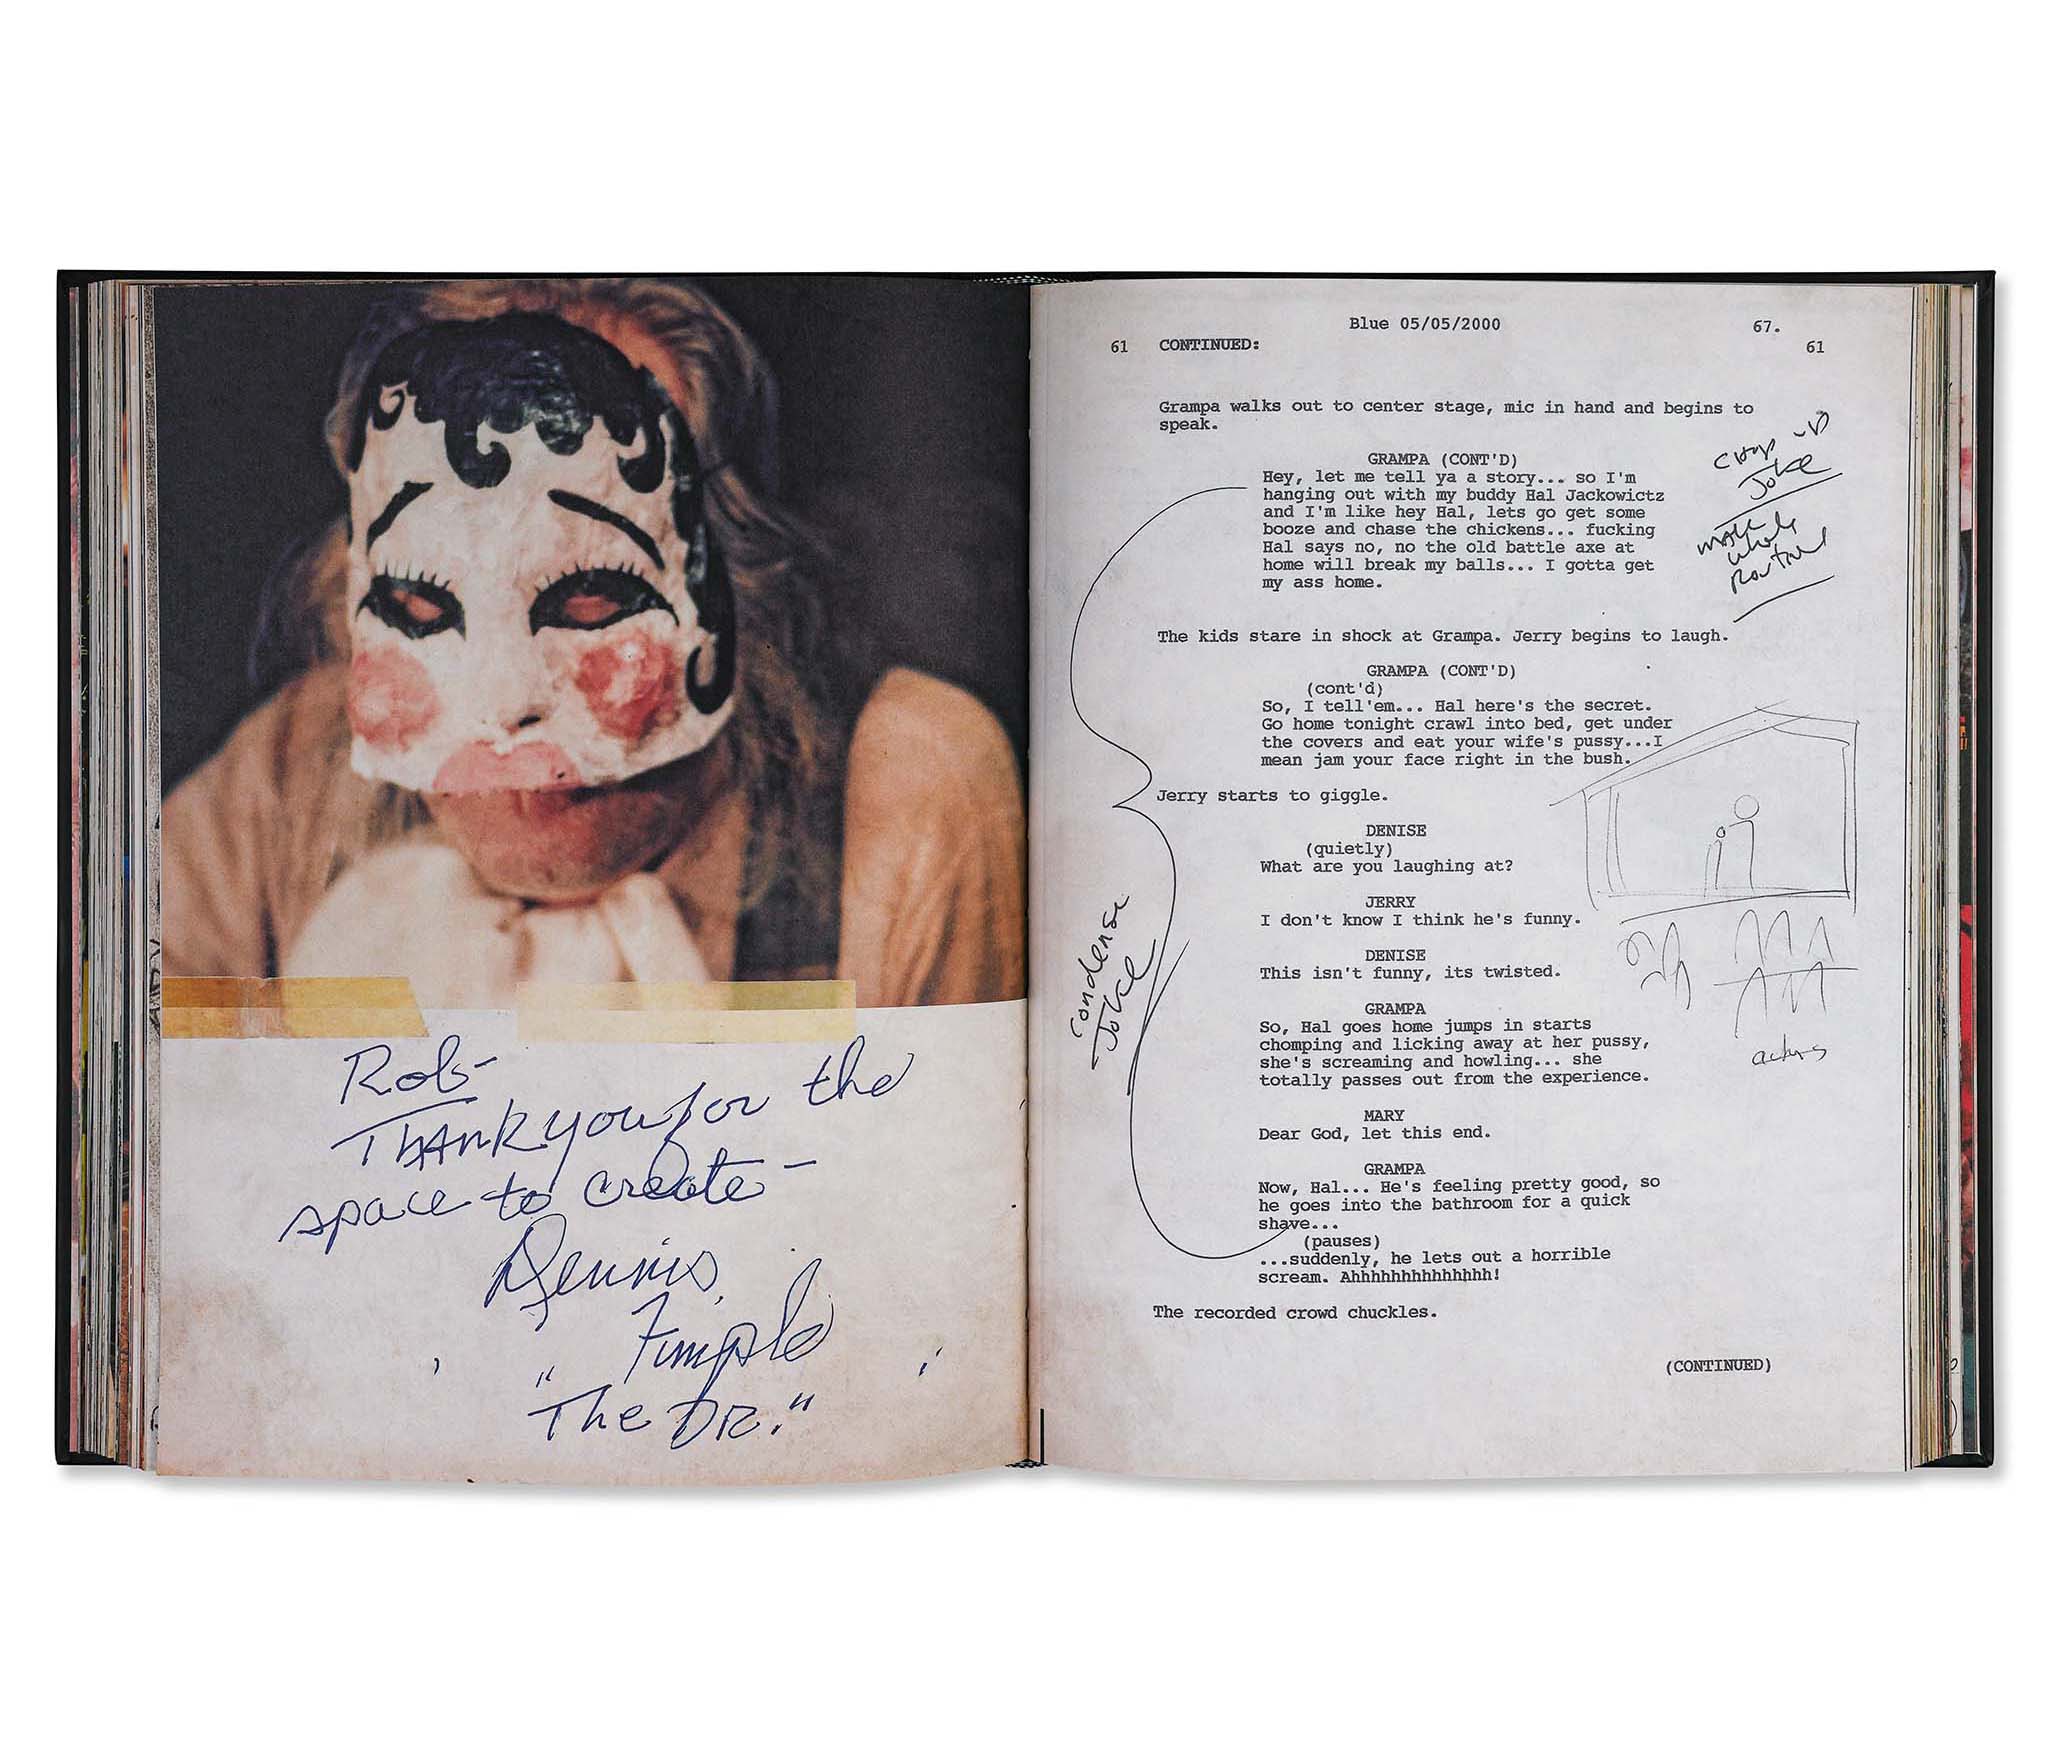 Rob-
Thank you for the
space to create -
Dennis
Fimple
"The DR."
Blue 05/05/2000 67.
61 CONTINUED: 61
Grampa walks out to center stage, mic in hand and begins to
speak.
GRAMPA (CONT'D)
Hey, let me tell ya a story... so I'm
hanging out with my buddy Hal Jackowictz
and I'm like hey Hal, lets go get some
booze and chase the chickens... fucking
Hal says no, no the old battle axe at
home will break my balls... I gotta get
my ass home.
Chop
Joke
whole
Routine
The kids stare in shock at Grampa. Jerry begins to laugh.
GRAMPA (CONT'D)
(cont'd)
So, I tell'em... Hal here's the secret.
Go home tonight crawl into bed, get under
the covers and eat your wife's pussy...I
mean jam your face right in the bush.
Jerry starts to giggle.
DENISE
(quietly)
What are you laughing at?
JERRY
I don't know I think he's funny.
condense
Joke
DENISE
This isn't funny, its twisted.
GRAMPA
So, Hal goes home jumps in starts
chomping and licking away at her pussy,
she's screaming and howling... she
totally passes out from the experience.
actors
MARY
Dear God, let this end.
GRAMPA
Now, Hal... He's feeling pretty good, so
he goes into the bathroom for a quick
shave...
(pauses)
...suddenly, he lets out a horrible
scream. Ahhhhhhhhhhhhhh!
The recorded crowd chuckles.
(CONTINUED)